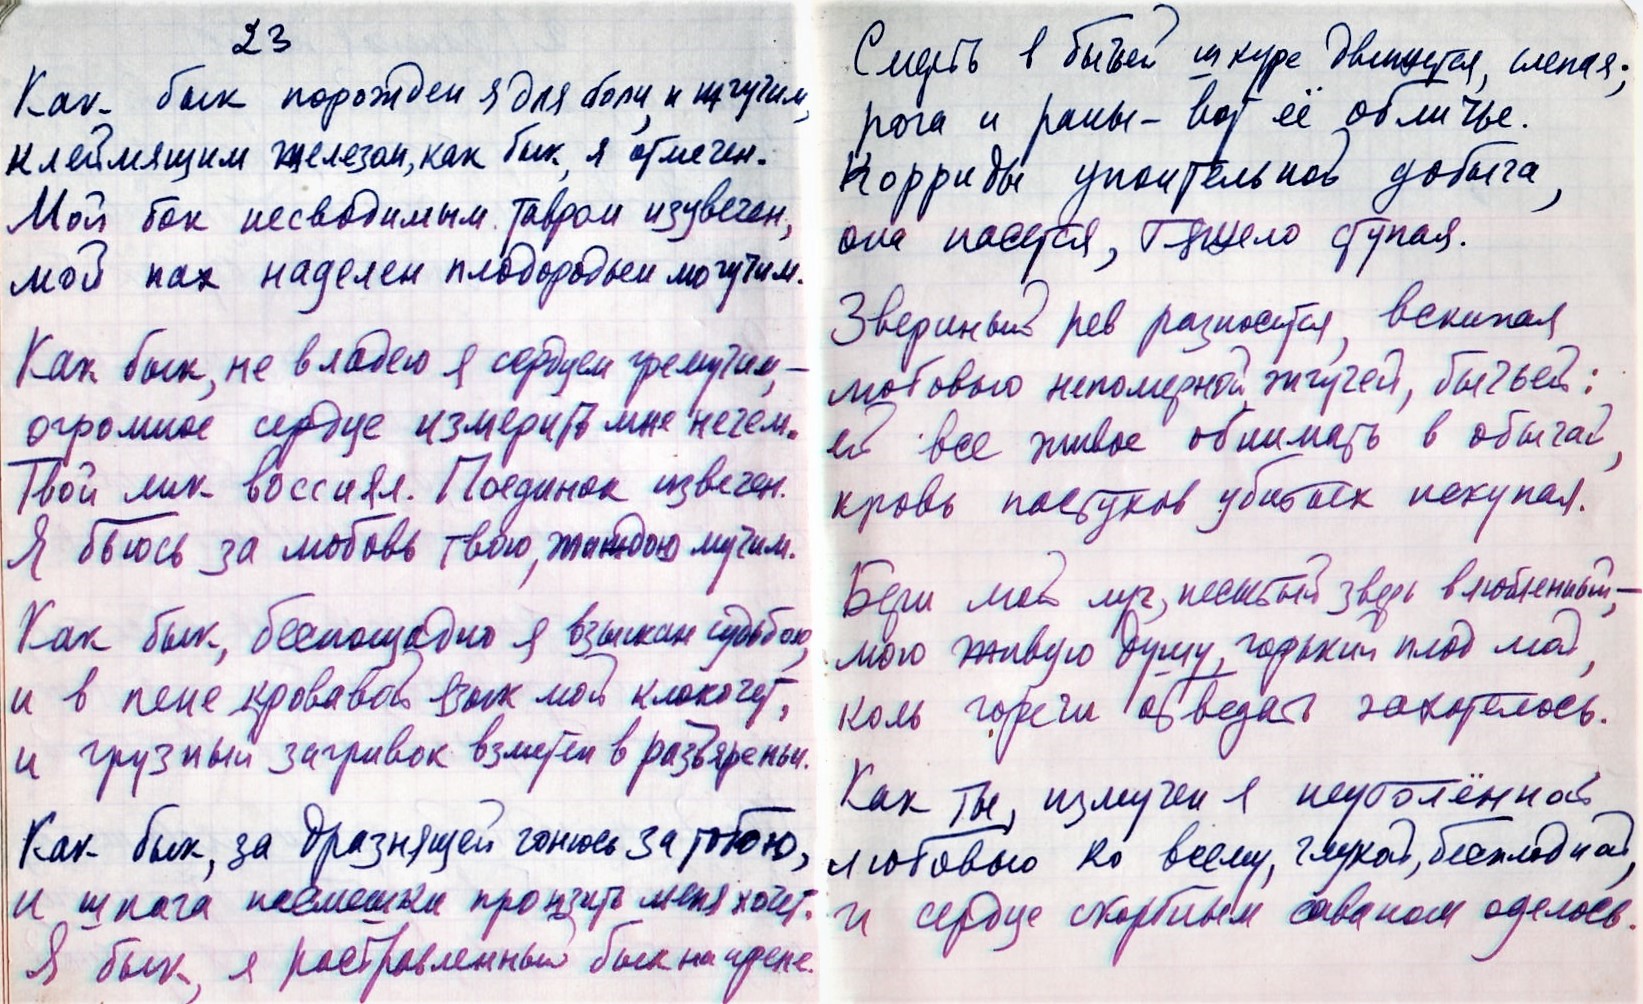 23
Как бык порожден я для боли, и жгучим,
клеймящим железом, как бык, я отмечен.
Мой бок несводимым тавром изувечен,
мой пах наделен плодородьем могучим.
Как бык, не владею я сердцем гремучим, –
огромное сердце измерить мне нечем.
Твой лик воссиял. Поединок извечен.
Я бьюсь за любовь твою, жаждою мучим.
Как бык, беспощадно я взыскан судьбою,
и в пене кровавой язык мой клокочет,
и грузный загривок взметен в разъяреньи.
Как бык, за дразнящей гонюсь за тобою,
и шпага насмешки пронзить меня хочет.
Я бык, я растравленный бык на арене.
Смерть в бычьей шкуре движется, слепая;
рога и раны – вот её обличье.
Корриды упоительной добыча,
она пасется, тяжело ступая.
Звериный рев разносится, вскипая
любовью непомерной, жгучей, бычьей:
ей все живое обнимать в обычай,
кровь пастухов убитых искупая.
Бери мой луг, несытый зверь влюбленный, –
мою живую душу, горький плод мой,
коль горечи отведать захотелось.
Как ты, измучен я неутолённой
любовью ко всему, глухой, бесплодной,
и сердце скорбным саваном оделось.